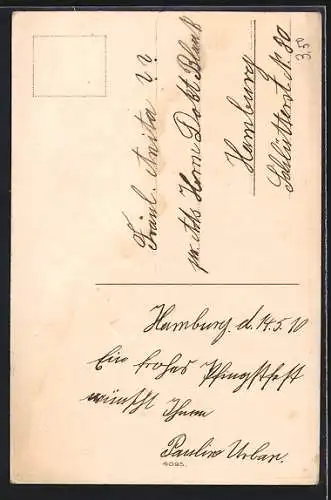 Fräul. Anita
pr. Adr. Herrn Dobt Blank
Hamburg
Schlütterst. N. 80
3,50
Hamburg. d. 14.5.10
Ein frohes Pfingstfest
wünscht Ihnen
Paulin Urban.
6095.